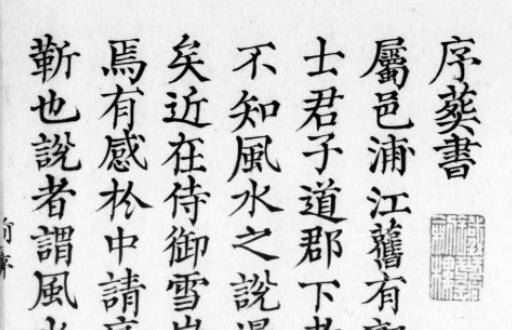 序葬書
屬邑浦江舊有
士君子道郡下
不知風水之說
矣近在侍御雪
焉有感於中請
靳也說者謂風